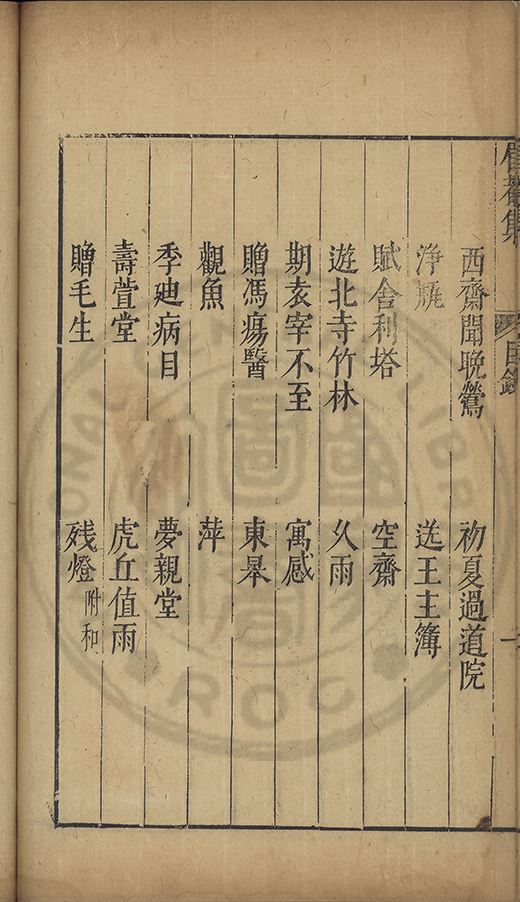 西齋聞晚鶯　初夏過道院
淨曉　送王主簿
賦舍利塔　空齋
遊北寺竹林　久雨
期袁宰不至　寓感
贈馮瘍醫　東皋
觀魚　萍
季迪病目　夢親堂
壽萱堂　虎丘值雨
贈毛生　残燈附和